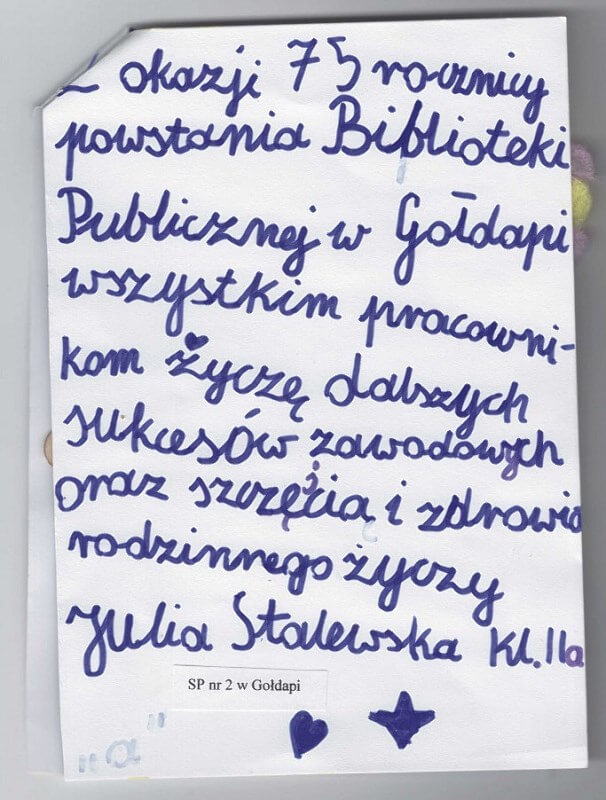 Z okazji 75 rocznicy
powstania Biblioteki
Publicznej w Gołdapi
wszystkim pracowni-
kom życzę dalszych
sukcesów zawodowych
oraz szczęścia i zdrowia
rodzinnego życzy
Julia Stalewska kl. IIa
SP nr 2 w Gołdapi
"a"